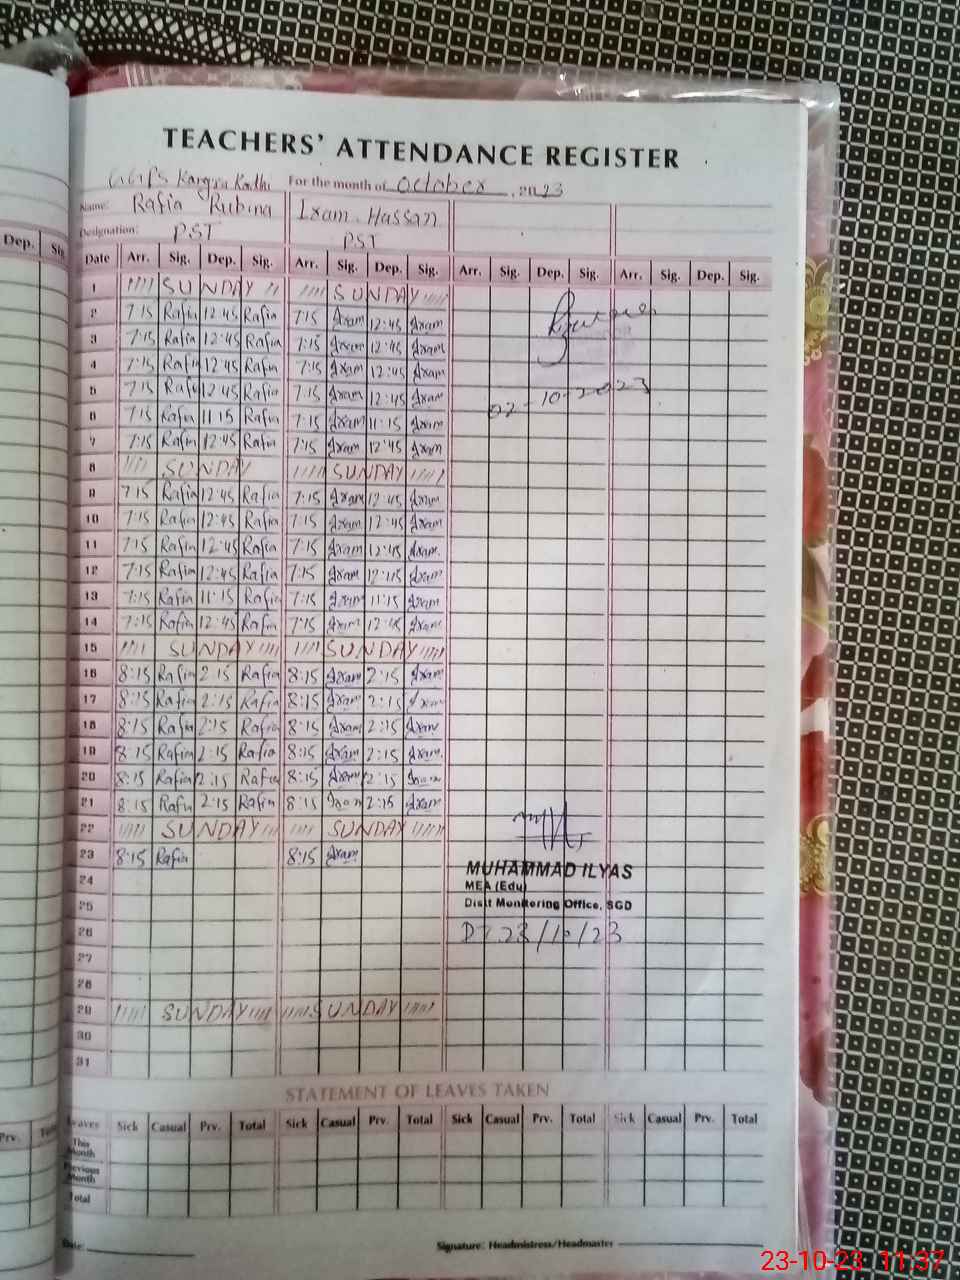 TEACHERS' ATTENDANCE REGISTER
GGPS Kangra Kothi For the month of October, 2023
Name: Rafia Rubina Ixam Hassan
Designation: PST PST
Dep. Sig.
Date Arr. Sig. Dep. Sig. Arr. Sig. Dep. Sig. Arr. Sig. Dep. Sig. Arr. Sig. Dep. Sig.
1 SUNDAY SUNDAY
2 7:15 Rafia 12:45 Rafia 7:15 Ixam 12:45 Ixam
3 7:15 Rafia 12:45 Rafia 7:15 Ixam 12:45 Ixam
4 7:15 Rafia 12:45 Rafia 7:15 Ixam 12:45 Ixam
5 7:15 Rafia 12:45 Rafia 7:15 Ixam 12:45 Ixam
02-10-2023
6 7:15 Rafia 11:15 Rafia 7:15 Ixam 11:15 Ixam
7 7:15 Rafia 12:45 Rafia 7:15 Ixam 12:45 Ixam
8 SUNDAY SUNDAY
9 7:15 Rafia 12:45 Rafia 7:15 Ixam 12:45 Ixam
10 7:15 Rafia 12:45 Rafia 7:15 Ixam 12:45 Ixam
11 7:15 Rafia 12:45 Rafia 7:15 Ixam 12:45 Ixam
12 7:15 Rafia 12:45 Rafia 7:15 Ixam 12:45 Ixam
13 7:15 Rafia 11:15 Rafia 7:15 Ixam 11:15 Ixam
14 7:15 Rafia 12:45 Rafia 7:15 Ixam 12:45 Ixam
15 SUNDAY SUNDAY
16 8:15 Rafia 2:15 Rafia 8:15 Ixam 2:15 Ixam
17 8:15 Rafia 2:15 Rafia 8:15 Ixam 2:15 Ixam
18 8:15 Rafia 2:15 Rafia 8:15 Ixam 2:15 Ixam
19 8:15 Rafia 2:15 Rafia 8:15 Ixam 2:15 Ixam
20 8:15 Rafia 2:15 Rafia 8:15 Ixam 2:15 Ixam
21 8:15 Rafia 2:15 Rafia 8:15 Ixam 2:15 Ixam
22 SUNDAY SUNDAY
23 8:15 Rafia 8:15 Ixam
MUHAMMAD ILYAS
24
MEA (Edu)
25
Distt Monitoring Office, SGD
26
DT 23/10/23
27
28
29 SUNDAY SUNDAY
30
31
STATEMENT OF LEAVES TAKEN
Leaves Sick Casual Prv. Total Sick Casual Prv. Total Sick Casual Prv. Total Sick Casual Prv. Total
This Month
Previous Month
Total
Date: Signature: Headmistress/Headmaster
23-10-23 11:37